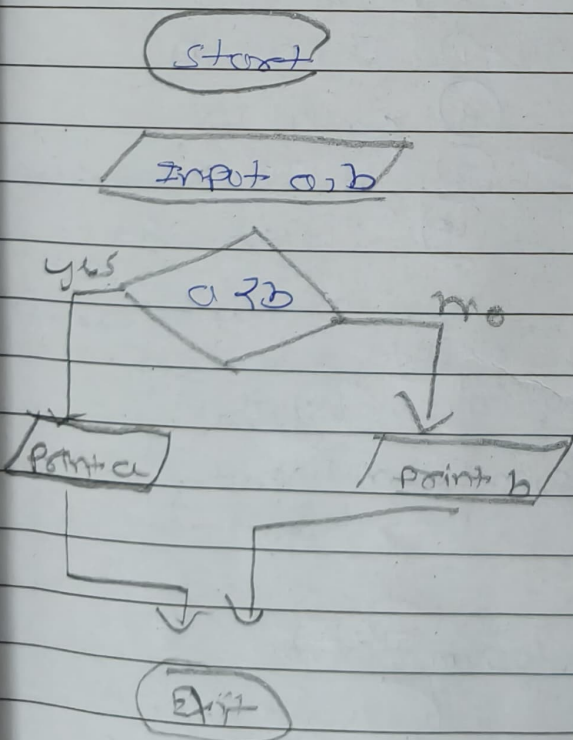 Start
Input a, b
a < b
yes
no
print a
print b
Exit